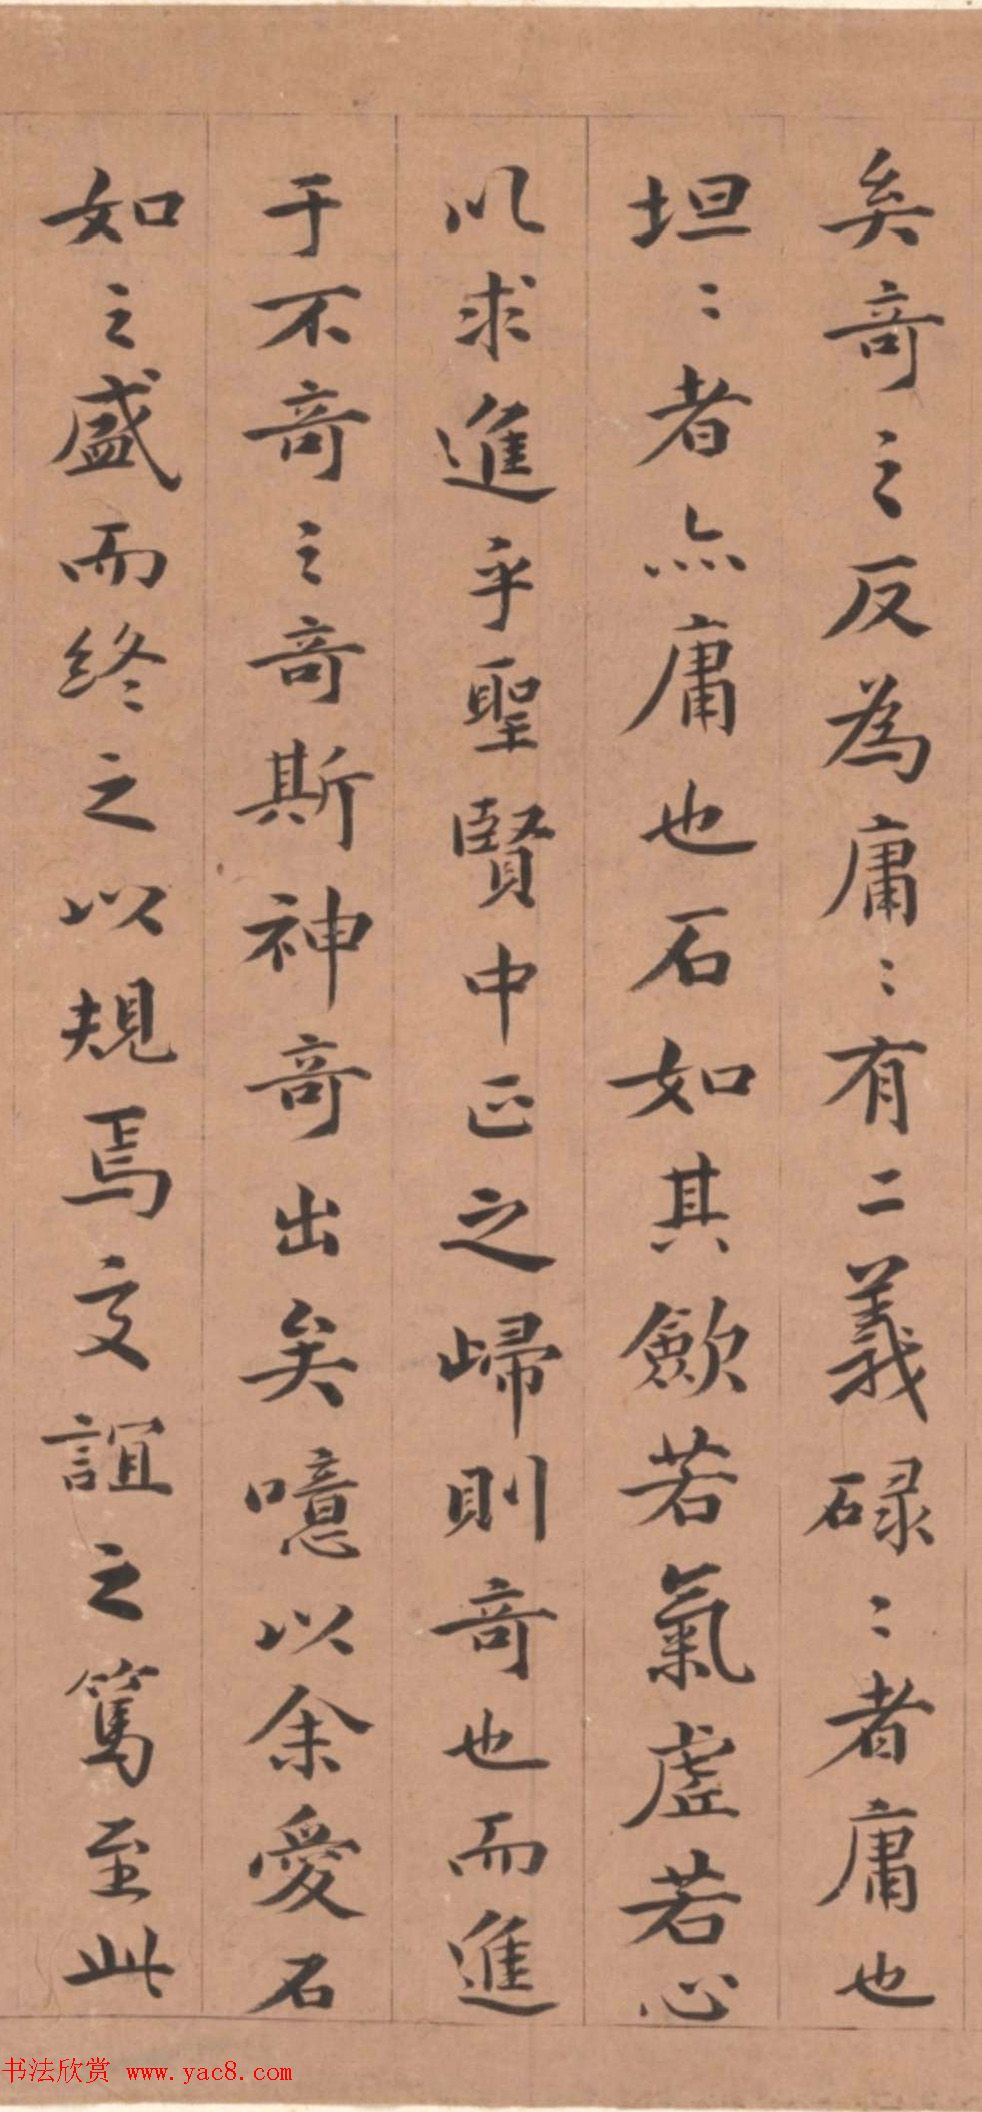 矣奇之反為庸〻有二義碌〻者庸也
坦〻者亦庸也石如其歛若氣虛若心
以求進乎聖賢中正之歸則奇也而進
于不奇之奇斯神奇出矣噫以余愛石
如之盛而終之以規焉交誼之篤至此
书法欣赏 www.yac8.com